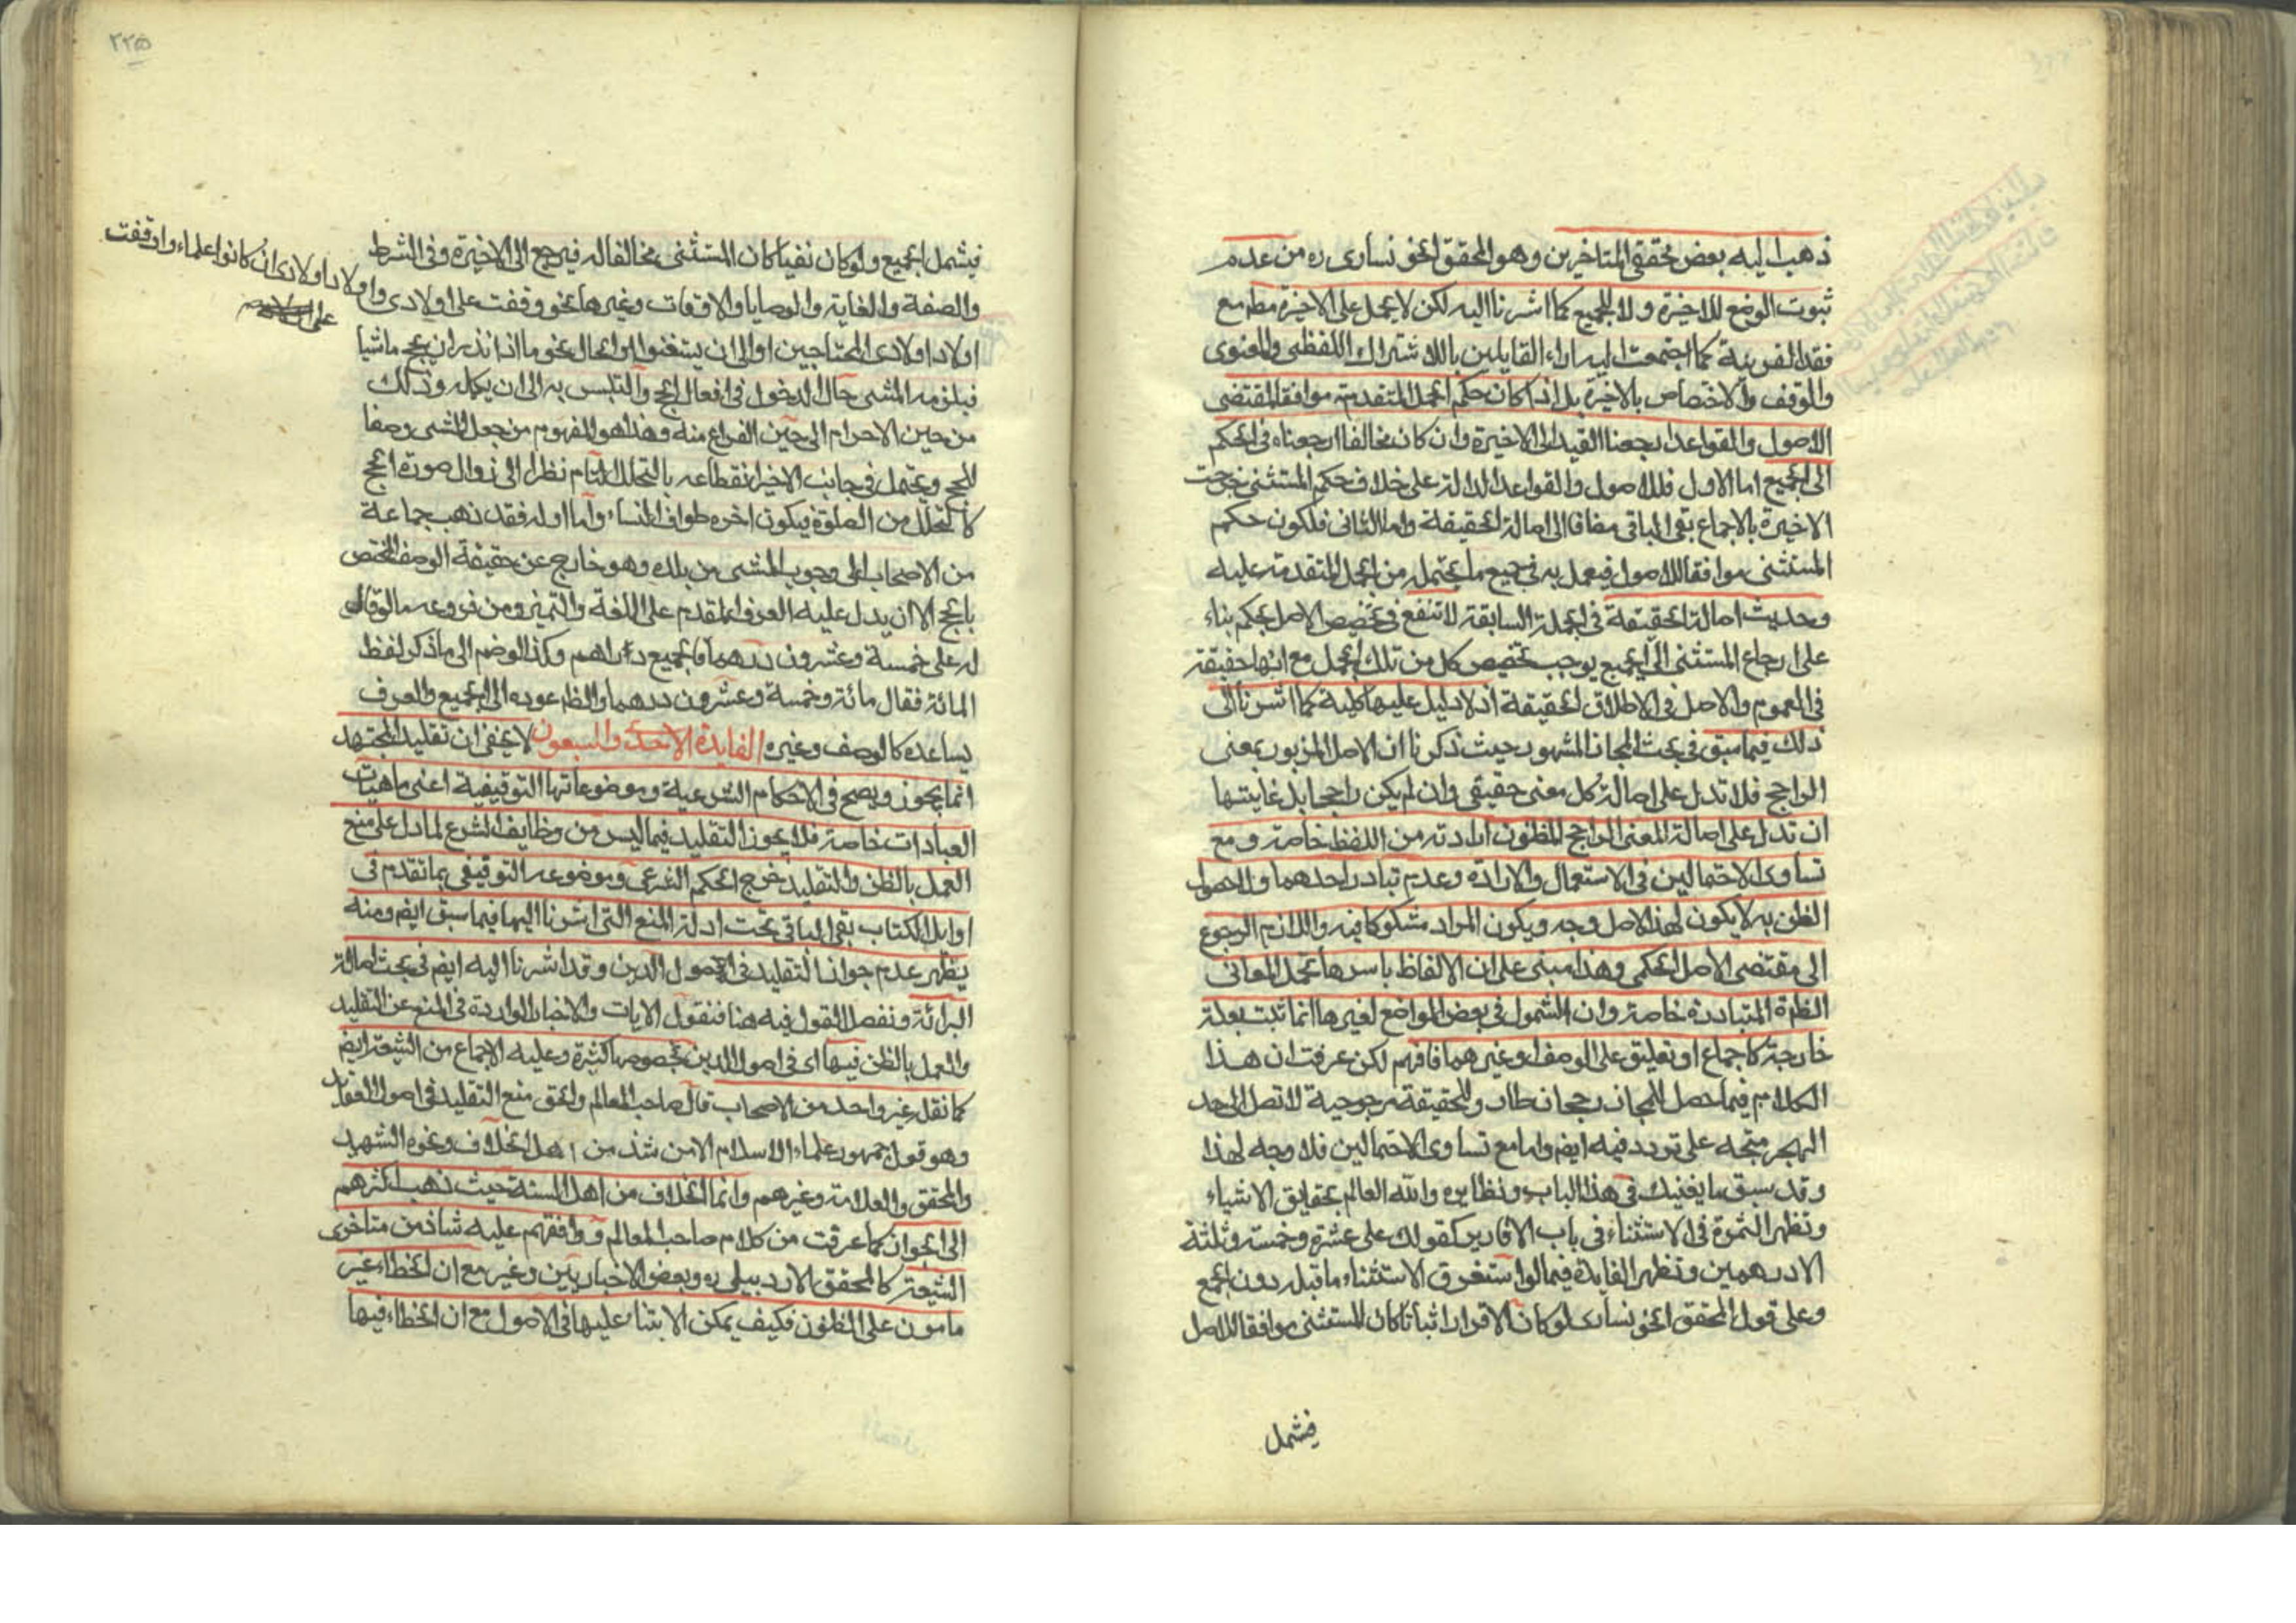 ذهب اليه بعض محققي المتاخرين وهو المحقق الخونساري ره من عدم
ثبوت الوضع للاخيرة ولا للجميع كما اشرنا اليه لكن لا يحمل على الاخيرة مطم مع
فقد القرينة كما اجتمعت اليه اراء القايلين بالاشتراك اللفظي والمعنوي
والوقف والاختصاص بالاخيرة بل اذا كان حكم الجمل المتقدمة موافقا لمقتضى
الاصول والقواعد ارجعنا القيد الى الاخيرة وان كان مخالفا ارجعناه في الحكم
الى الجميع اما الاول فللاصول والقواعد الدالة على خلاف حكم المستثنى خرجت
الاخيرة بالاجماع بقي الباقي مضافا الى اصالة الحقيقة واما الثاني فلكون حكم
المستثنى موافقا للاصول فيعمل به في جميع ما يحتمله من الجمل المتقدمة عليه
وحديث اصالة الحقيقة في الجملة السابقة لا تنفع في تخصيص الاصل بحكم بناء
على ارجاع المستثنى الى الجميع يوجب تخصيص كل من تلك الجمل مع انها حقيقة
في العموم والاصل في الاطلاق الحقيقة اذ لا دليل عليها كلية كما اشرنا الى
ذلك فيما سبق في بحث المجاز المشهور حيث ذكرنا ان الاصل المزبور بمعنى
الراجح فلا تدل على اصالة كل معنى حقيقي وان لم يكن راجحا بل غايتها
ان تدل على اصالة المعنى الراجح المظنون ارادته من اللفظ خاصة ومع
تساوى الاحتمالين في الاستعمال والارادة وعدم تبادر احدهما و حصول
الظن به لا يكون لهذا الاصل وجه ويكون المراد مشكوكا فيه واللازم الرجوع
الى مقتضى الاصل الحكمي وهذا مبني على ان الالفاظ باسرها تحمل المعاني
الظرة المتبادرة خاصة وان الشمول في بعض المواضع لغيرها انما ثبت بعلة
خارجة كاجماع او تعليق على الوصف او غيرهما فافهم لكن عرفت ان هذا
الكلام فيما حصل للمجاز رجحان طار وللحقيقة مرجوحية لا تصل الى حد
الهجر متجه على تردد فيه ايضم واما مع تساوى الاحتمالين فلا وجه لهذا
وقد سبق ما يغنيك في هذا الباب ونظايره والله العالم بحقايق الاشياء
وتظهر الثمرة في الاستثناء في باب الاقارير كقولك على عشرة وخمسة وثلثة
الا درهمين وتظهر الفايدة فيما لو استغرق الاستثناء ما قبله دون الجمع
وعلى قول المحقق الخونساري لو كان الاقرار اثباتا كان المستثنى موافقا للاصل
فيشمل
٢٢۵
فيشمل الجميع ولو كان نفيا كان المستثنى مخالفا له فيرجع الى الاخيرة وفي الشرط
والصفة والغاية والوصايا والاوقات وغيرها نحو وقفت على اولادي و
اولاد اولادي ان كانوا علماء او وقفت
على
اولاد اولادي المحتاجين او الى ان يستغنوا والحال نحو ما اذا نذر ان يحج ماشيا
فيلزمه المشي حال الدخول في افعال الحج والتلبس به الى ان يكمله وذلك
من حين الاحرام الى حين الفراغ منه وهذا هو المفهوم من جعل المشي وصفا
للحج ويحتمل في جانب الاخير انقطاعه بالتحلل التام نظرا الى زوال صورة الحج
كالتحلل من الصلوة فيكون اخره طواف النساء واما اوله فقد ذهب جماعة
من الاصحاب الى وجوب المشي من بلده وهو خارج عن حقيقة الوصف المختص
بالحج الا ان يدل عليه العرف المقدم على اللغة والتميز ومن فروعه ما لو قال
له على خمسة وعشرون درهما فالجميع دراهم وكذا لو ضم الى ما ذكر لفظ
المائة فقال مائة وخمسة وعشرون درهما والظ عوده الى الجميع والعرف
يساعده كالوصف وغيره الفايدة الاحد والسبعون لا يخفى ان تقليد المجتهد
انما يجوز ويصح في الاحكام الشرعية وموضوعاتها التوقيفية اعنى ماهيات
العبادات خاصة فلا يجوز التقليد فيما ليس من وظايف الشرع لما دل على منع
العمل بالظن والتقليد خرج الحكم الشرعي وموضوعه التوقيفي بما تقدم في
اوايل الكتاب بقي الباقي تحت ادلة المنع التي اشرنا اليها فيما سبق ايضم ومنه
يظهر عدم جواز التقليد في اصول الدين وقد اشرنا اليه ايضم في بحث اصالة
البرائة ونفصل القول فيه هنا فنقول الايات والاخبار الواردة في المنع عن التقليد
والعمل بالظن فيها اى في اصول الدين بخصوصها كثيرة وعليه الاجماع من الشيعة ايضم
كما نقل غير واحد من الاصحاب قال صاحب المعالم والحق منع التقليد في اصول العقايد
وهو قول جمهور علماء الاسلام الا من شذ من اهل الخلاف ونحوه الشهيد
والمحقق والعلامة وغيرهم وانما الخلاف من اهل السنة حيث ذهب اكثرهم
الى الجواز كما عرفت من كلام صاحب المعالم ووافقهم عليه شاذ من متاخرى
الشيعة كالمحقق الاردبيلي ره وبعض الاخباريين وغير مع ان الخطاء غير
مامون على الظنون فكيف يمكن الابتناء عليها في الاصول مع ان الخطاء فيها